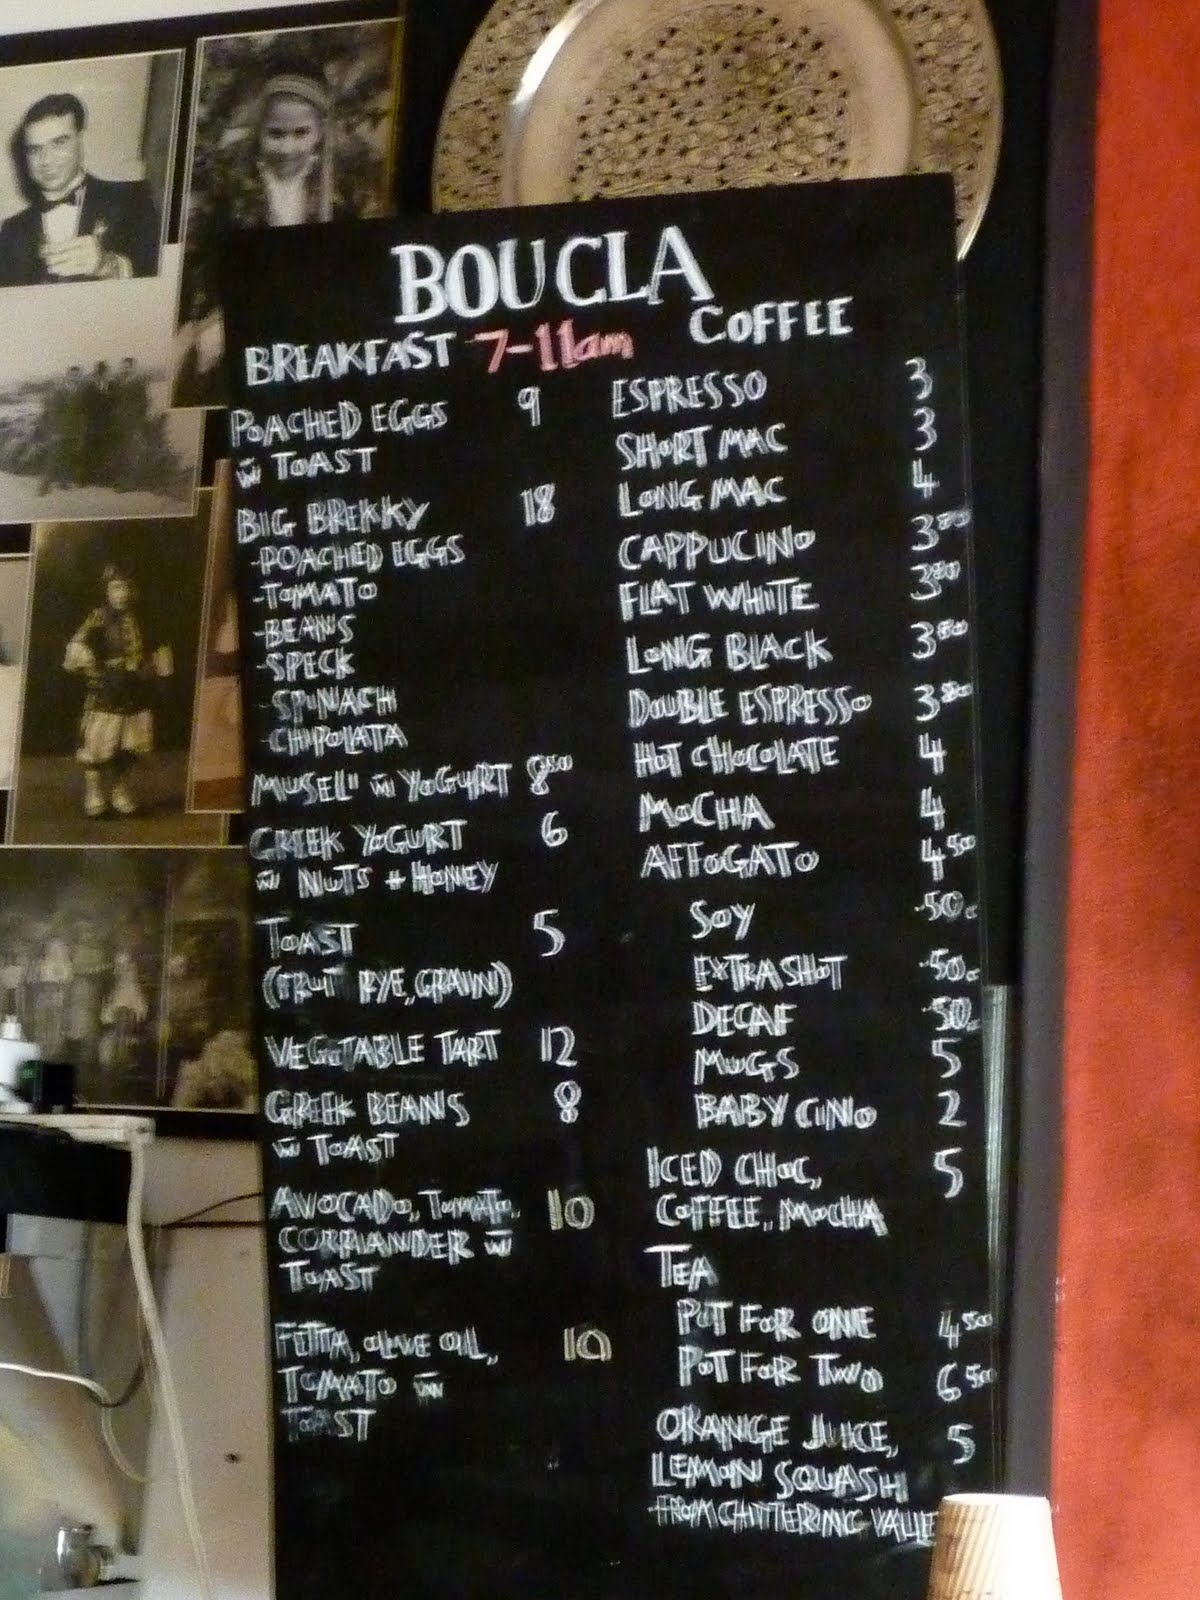 BOUCLA
BREAKFAST 7-11am
POACHED EGGS 9
w̄ TOAST
BIG BREKKY 18
-POACHED EGGS
-TOMATO
-BEANS
-SPECK
-SPINACH
-CHIPOLATA
MUSELII w̄ YOGURT 8.50
GREEK YOGURT 6
w̄ NUTS + HONEY
TOAST 5
(FRUIT RYE, GRAIN)
VEGETABLE TART 12
GREEK BEANS 8
w̄ TOAST
AVOCADO, TOMATO, 10
CORRIANDER w̄
TOAST
FETTA, OLIVE OIL, 10
TOMATO w̄
TOAST
COFFEE
ESPRESSO 3
SHORT MAC 3
LONG MAC 4
CAPPUCINO 3.80
FLAT WHITE 3.80
LONG BLACK 3.80
DOUBLE ESPRESSO 3.80
HOT CHOCOLATE 4
MOCHA 4
AFFOGATO 4.50
SOY .50c
EXTRA SHOT .50c
DECAF .50c
MUGS 5
BABY CINO 2
ICED CHOC, 5
COFFEE, MOCHA
TEA
POT FOR ONE 4.50
POT FOR TWO 6.50
ORANGE JUICE, 5
LEMON SQUASH
-FROM CHITTERING VALLE